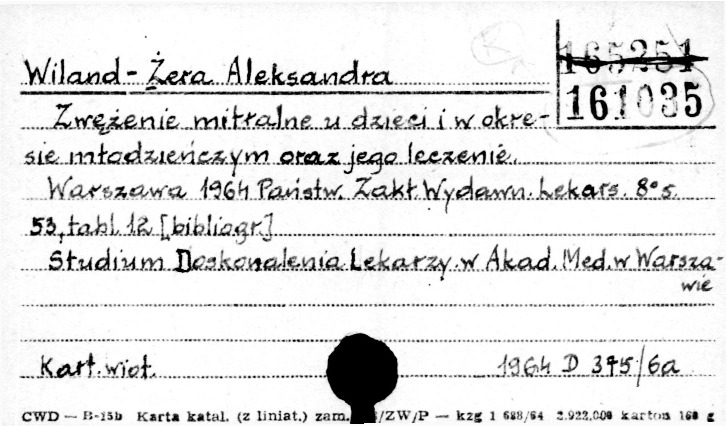 165251
161035
Wiland-Żera Aleksandra
Zwężenie mitralne u dzieci i w okre-
sie młodzieńczym oraz jego leczenie.
Warszawa 1964 Państw. Zakł. Wydawn. Lekars. 8° s.
53, tabl 12 [bibliogr]
Studium Doskonalenia Lekarzy w Akad. Med. w Warsza-
wie
Kart. wiot. 1964 D 375/6a
CWD — B-15b Karta katal. (z liniat.) zam. /ZW/P — kzg 1 688/64 2.922.000 karton 160 g